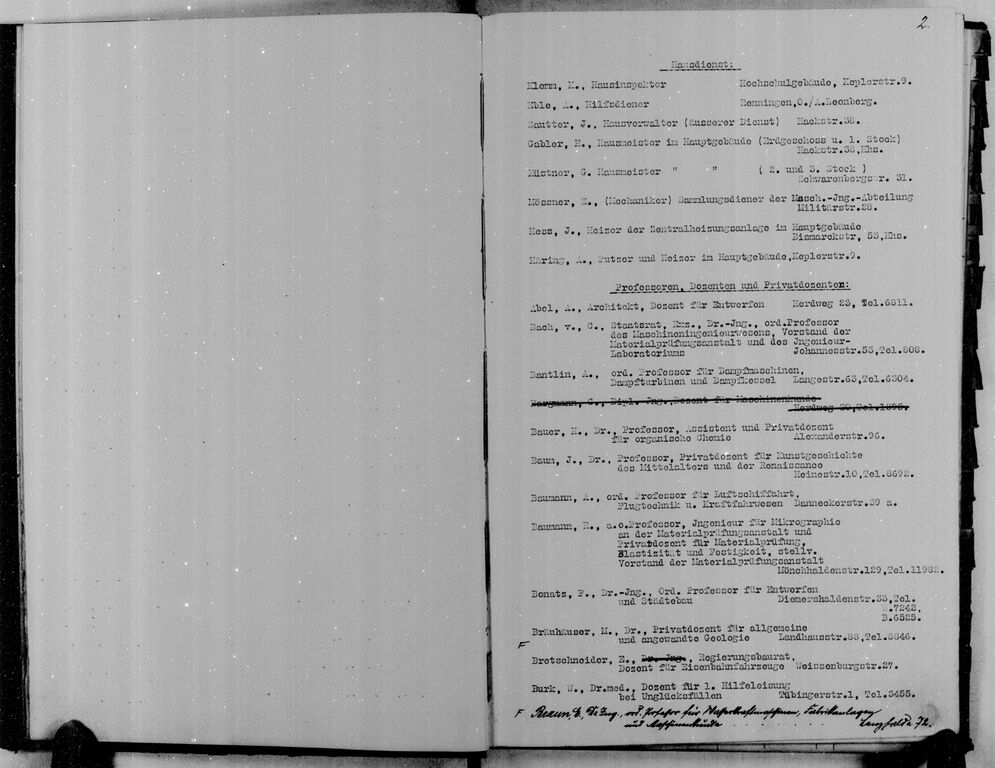 2.
Hausdienst:
Klemm, K., Hausinspektor Hochschulgebäude, Keplerstr.9.
Eble, A., Hilfsdiener Renningen,O./A.Leonberg.
Sautter, J., Hausverwalter (äusserer Dienst) Hackstr.38.
Gabler, H., Hausmeister im Hauptgebäude (Erdgeschoss u. 1. Stock)
Hackstr.38,Hhs.
Küstner, G. Hausmeister " " ( 2. und 3. Stock )
Schwarenbergstr. 31.
Mössner, E., (Mechaniker) Sammlungsdiener der Masch.-Jng.-Abteilung
Militärstr.28.
Hess, J., Heizer der Zentralheizungsanlage im Hauptgebäude
Bismarckstr, 53,Hhs.
Häring, A., Putzer und Heizer im Hauptgebäude,Keplerstr.9.
Professoren, Dozenten und Privatdozenten:
Abel, A., Architekt, Dozent für Entwerfen Herdweg 23, Tel.6811.
Bach, v., C., Staatsrat, Exz., Dr.-Jng., ord.Professor
des Maschineningenieurwesens, Vorstand der
Materialprüfungsanstalt und des Jngenieur-
Laboratoriums Johannesstr.53,Tel.808.
Bantlin, A., ord. Professor für Dampfmaschinen,
Dampfturbinen und Dampfkessel Langestr.63,Tel.6304.
Bargmann, C., Dipl.-Jng.,Dozent für Maschinenkunde
Herdweg 30,Tel.1895.
Bauer, H., Dr., Professor, Assistent und Privatdozent
für organische Chemie Alexanderstr.96.
Baum, J., Dr., Professor, Privatdozent für Kunstgeschichte
des Mittelalters und der Renaissance
Heinestr.10,Tel.8692.
Baumann, A., ord. Professor für Luftschiffahrt,
Flugtechnik u. Kraftfahrwesen Danneckerstr.39 a.
Baumann, R., a.o.Professor, Jngenieur für Mikrographie
an der Materialprüfungsanstalt und
Privatdozent für Materialprüfung,
Elastizität und Festigkeit, stellv.
Vorstand der Materialprüfungsanstalt
Mönchhaldenstr.129,Tel.11982.
Bonatz, P., Dr.-Jng., Ord. Professor für Entwerfen
und Städtebau Diemershaldenstr.33,Tel.
.7242,
B.6525.
Bräuhäuser, M., Dr., Privatdozent für allgemeine
und angewandte Geologie Landhausstr.88,Tel.8846.
F
Bretschneider, E., Dr.-Jng., Regierungsbaurat,
Dozent für Eisenbahnfahrzeuge Weissenburgstr.27.
Burk, W., Dr.med., Dozent für 1. Hilfeleisung
bei Unglücksfällen Tübingerstr.1, Tel.3455.
F Braun, E, Dr Ing., ord. Professor für Wasserkraftmaschinen, Fabrikanlagen
und Maschinenkunde 72.